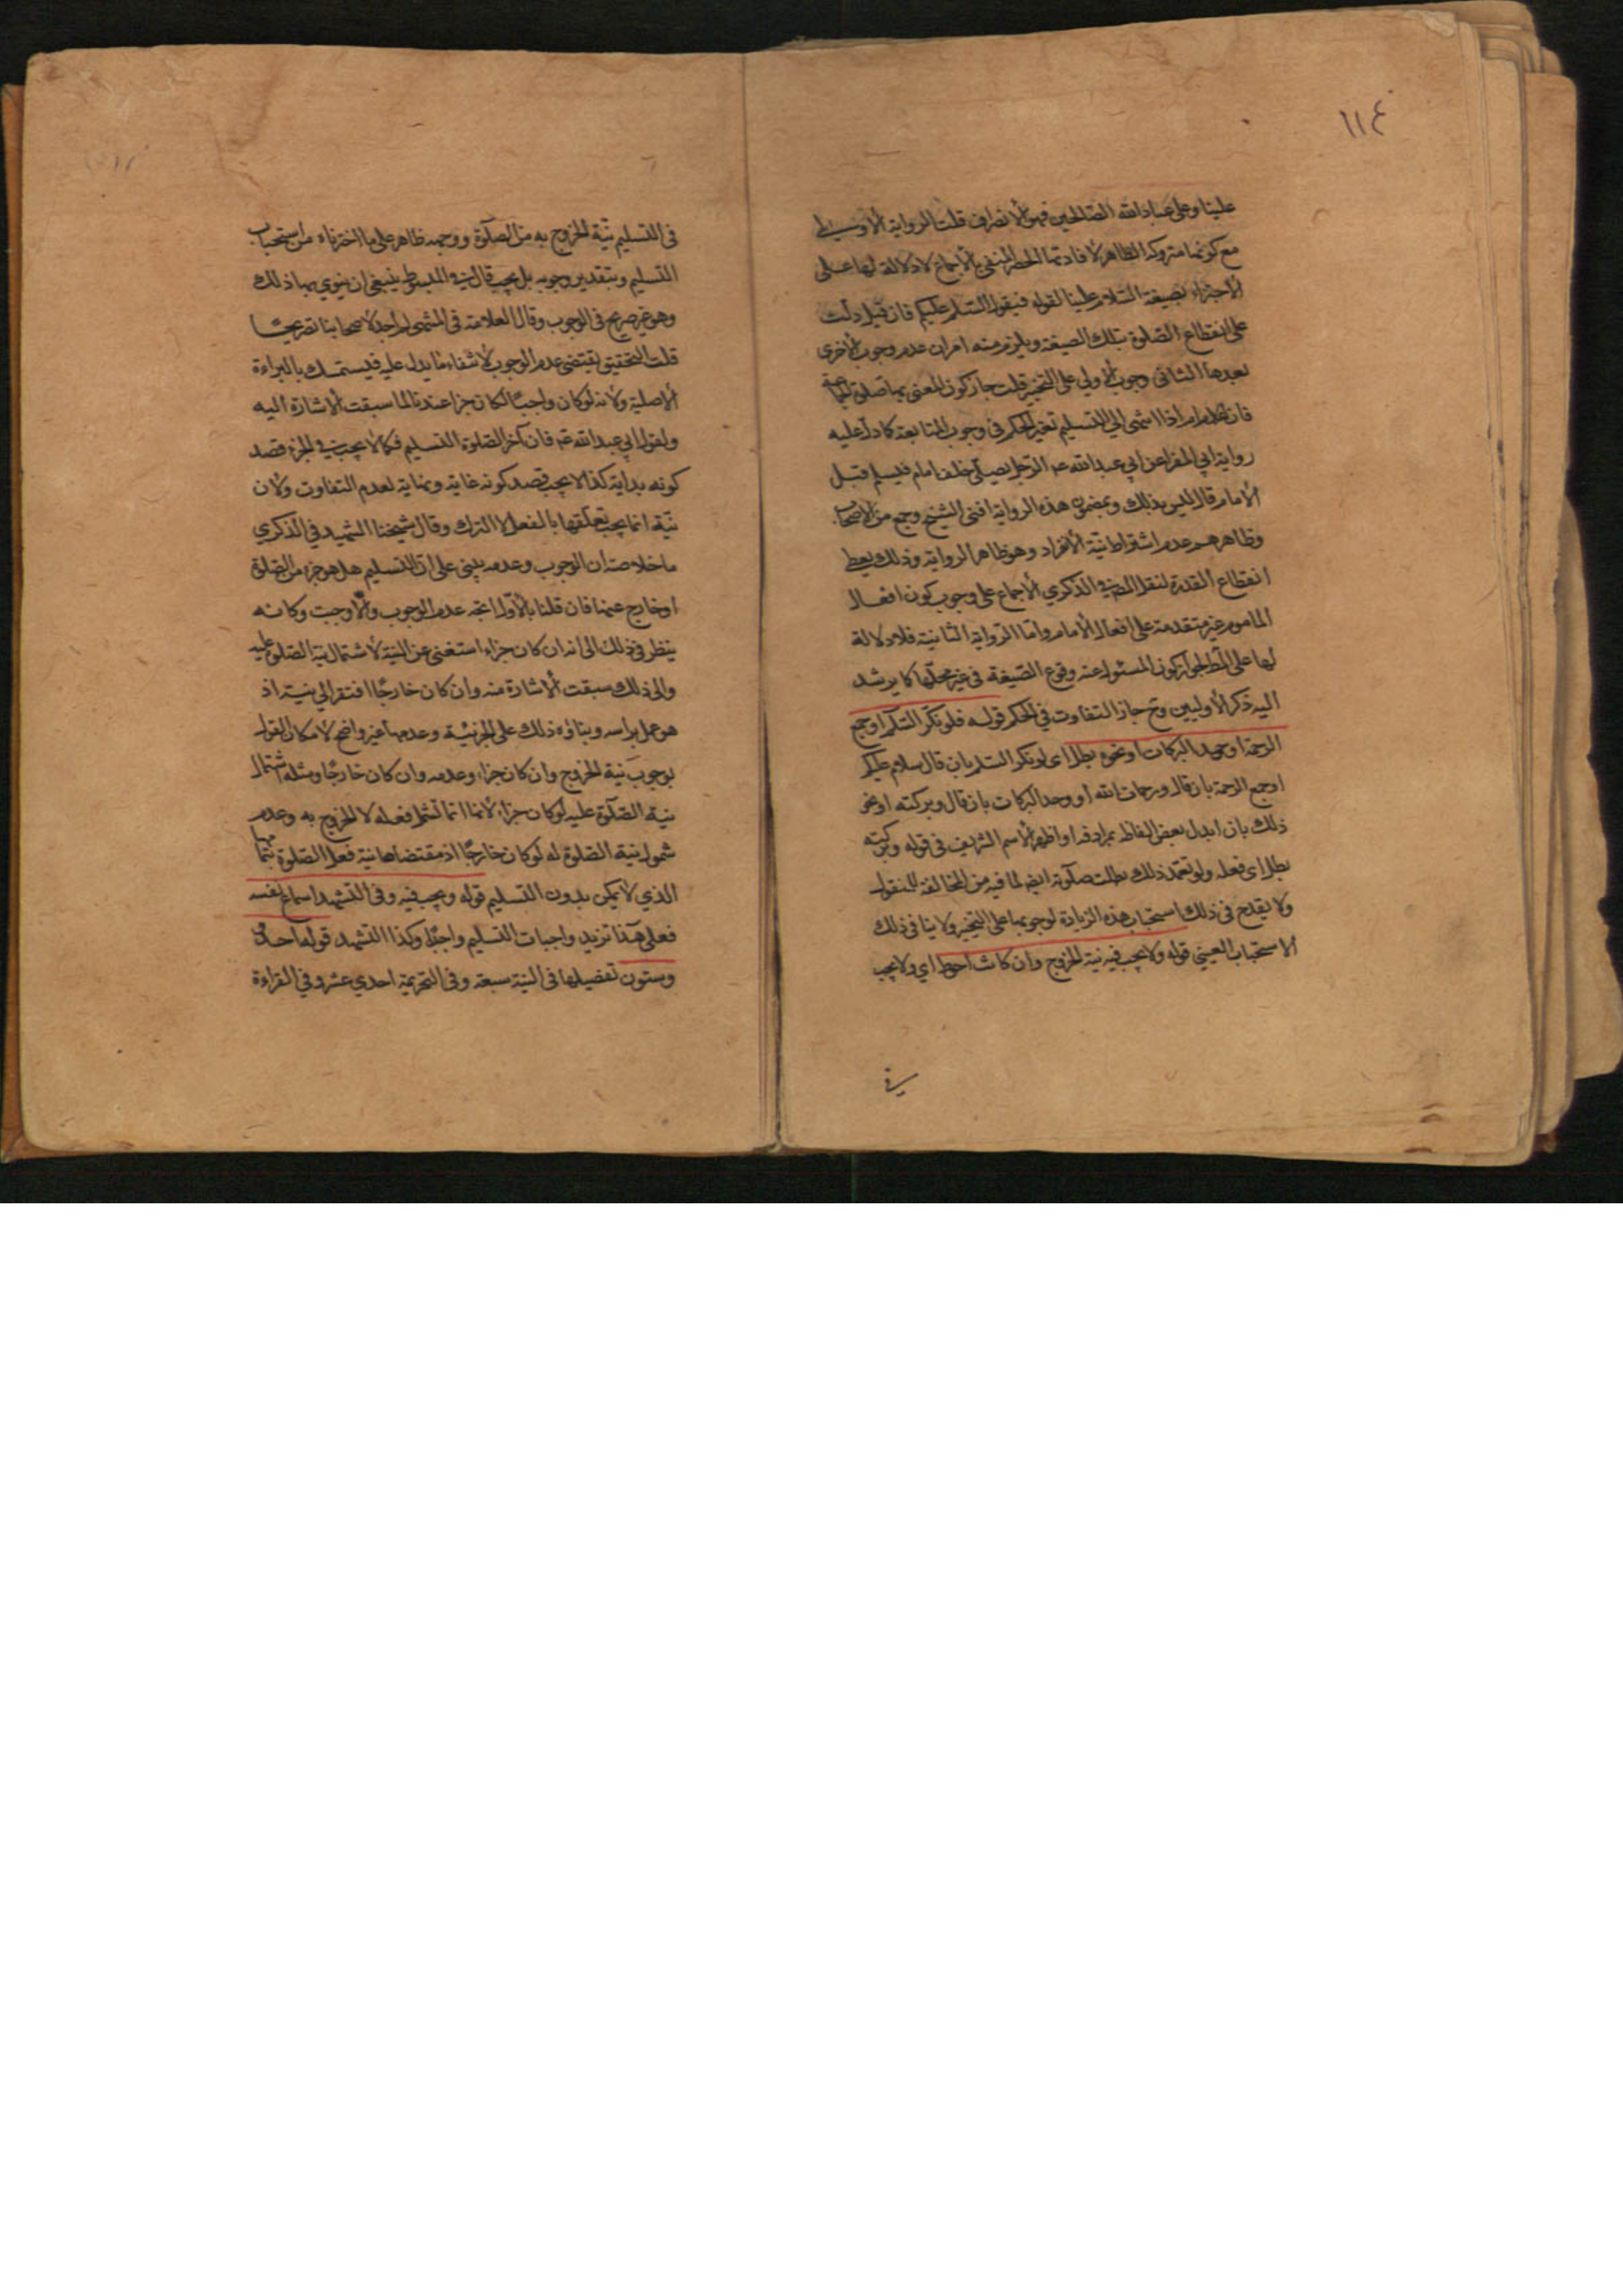 ١١٤
علينا وعلى عباد الله الصالحين فهو الانصراف قلت الرواية الاو
مع كونها متروكة الظاهر لافادتها الحصر المنفي بالاجماع لا دلالة لها على
الاجتزاء بصيغة السلام علينا لقوله فيقول السلم عليكم فان قيل دلت
على انقطاع الصلوة بتلك الصيغة ويلزم منه امران عدم وجوب الاخرى
بعدها الثانى وجوب الاولى على التخيير قلت جاز كون المعنى بها صلوة
فان الامام اذا انتهى الى التسليم تغير الحكم فى وجوب المتابعة كما دل عليه
رواية ابي المغرا عن ابي عبد الله عه الرجل يصلى خلف امام فيسلم قبل
الامام قال ليس بذلك وبمضمون هذه الرواية افتى الشيخ وجمع من الاصحاب
وظاهرهم عدم اشتراط نية الانفراد وهو ظاهر الرواية وذلك يعطى
انقطاع القدوة لنقل المص فى الذكري الاجماع على وجوب كون افعال
الماموم غير متقدمة على افعال الامام واما الرواية الثانية فلا دلالة
لها على المط لجواز كون المسئول عنه وقوع الصيغة فى غير محلها كما يرشد
اليه ذكر الاوليين وح جاز التفاوت في الحكم قوله فلو نكر السلم او جمع
الرحمة او وحد البركات او نحوه بطل اى لو نكر السلم بان قال سلام عليكم
او جمع الرحمة بان قال ورحمات الله او وحد البركات بان قال وبركته او نحو
ذلك بان ابدل بعض الفاظه بمرادفه او اظهر الاسم الشريف فى قوله وبركاته
بطل اى فعله ولو تعمد ذلك بطلت صلوته ايضا لما فيه من المخالفة للمنقول
ولا يقدح فى ذلك استحباب هذه الزيادة لوجوبها على التخيير ولا ينافى ذلك
الاستحباب العينى قوله ولا يجب فيه نية الخروج وان كانت احوط اي ولا يجب
فى التسليم نية الخروج به من الصلوة ووجهه ظاهر على ما اخترناه من استحباب
التسليم وبتقدير وجوبه بل يجب قال فى المبسوط ينبغى ان ينوي بها ذلك
وهو غير صريح فى الوجوب وقال العلامة فى المنتهى لم اجد لاصحابنا تصريحا
قلت التحقيق يقتضى عدم الوجوب لانتفاء ما يدل عليه فيستمسك بالبراءة
الاصلية ولانه لو كان واجبا لكان جزا عندنا لما سبقت الاشارة اليه
ولقول ابي عبد الله عه فان آخر الصلوة التسليم فكما لا يجب في الجزء قصد
كونه بداية كذا لا يجب قصد كونه غاية ونهاية لعدم التفاوت ولان
نية انما يجب تعلقها بالفعل لا الترك وقال شيخنا الشهيد في الذكري
ما خلاصته ان الوجوب وعدمه يبنى على ان التسليم هل هو جزء من الصلوة
او خارج عنها فان قلنا بالاول اتجه عدم الوجوب والا وجبت وكانه
ينظر فى ذلك الى انه ان كان جزاء استغنى عن النية لاشتمال نية الصلوة عليه
والى ذلك سبقت الاشارة منه وان كان خارجا افتقر الى نية اذ
هو عمل براسه وبناؤه ذلك على الجزئية وعدمها غير واضح لامكان القول
بوجوب نية الخروج وان كان جزاء وعدمه وان كان خارجا ومثله اشتمال
نية الصلوة عليه لو كان جزاء لانها انما تشمل فعله لا الخروج به وعدم
شمول نية الصلوة له لو كان خارجا اذ مقتضاها نية فعل الصلوة بتمامها
الذي لا يمكن بدون التسليم قوله ويجب فيه وفى التشهد اسماع نفسه
فعلى هذا تزيد واجبات التسليم واجبا وكذا التشهد قوله احد
وستون تفصيلها فى النية سبعة وفى التحريمة احدي عشر وفي القراءة